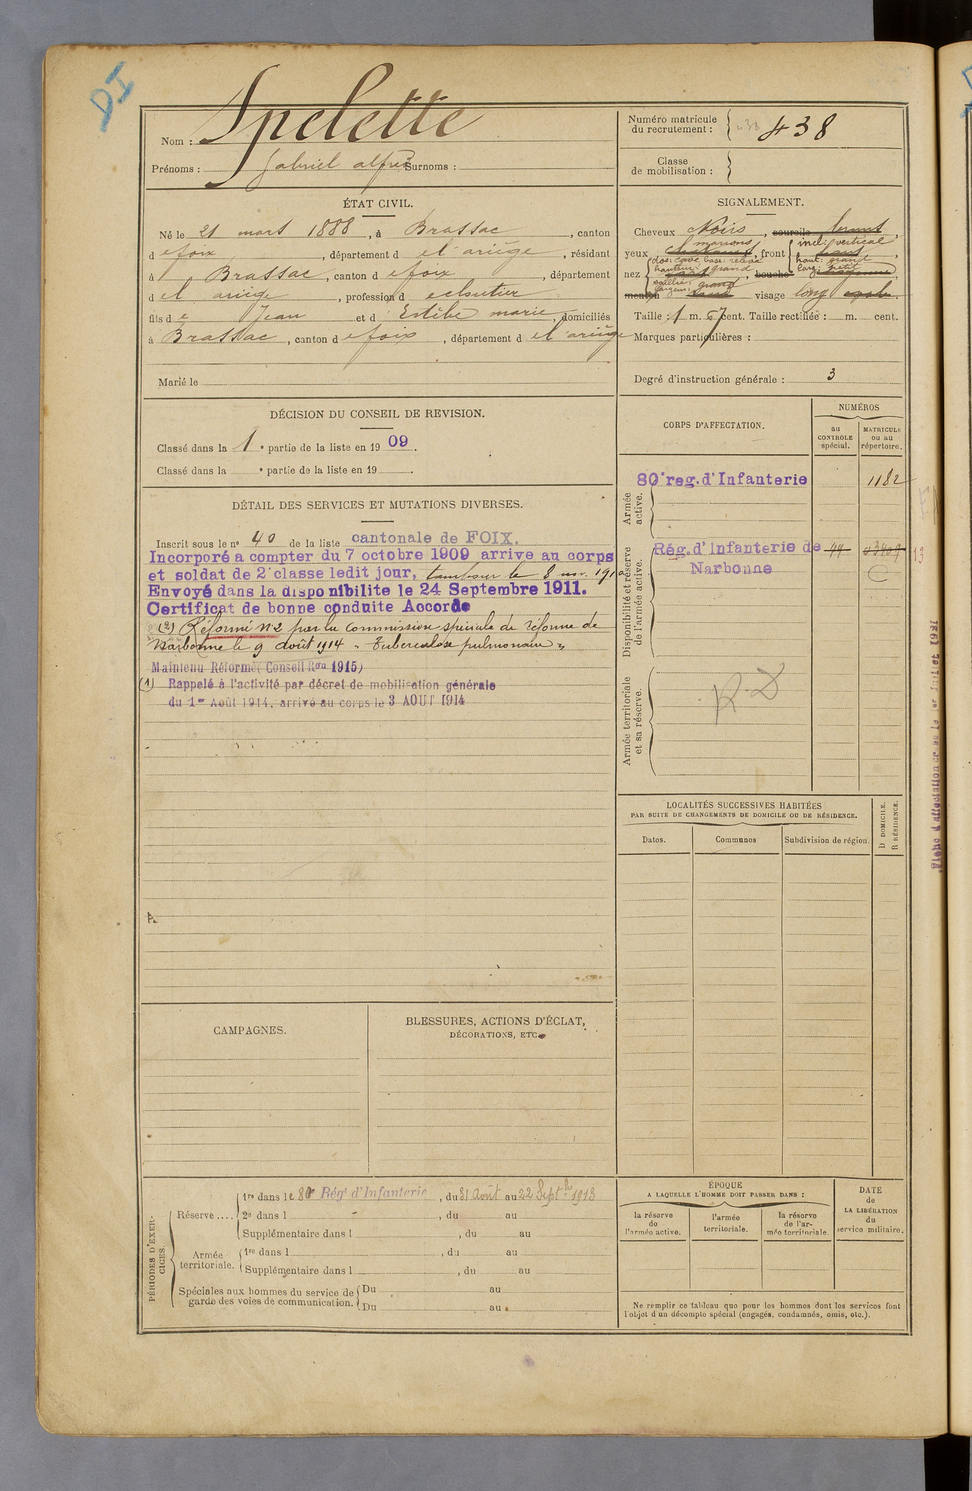 DI
Nom : Spelette
Prénoms : Gabriel alfred Surnoms :
Numéro matricule du recrutement : 438
Classe de mobilisation :
ÉTAT CIVIL.
Né le 21 mars 1888, à Brassac, canton
d e foix, département d e l'ariège, résidant
à Brassac, canton d e foix, département
d e l'ariège, profession d
fils d e Jean et d' Estèbe marie, domiciliés
à Brassac, canton d e foix, département d e l'ariège
Marié le
SIGNALEMENT.
Cheveux Noirs, sourcils bruns
yeux marrons, front incl: verticale
haut: grande
larg: petite
nez dos: cave base: relevée
hauteur: grand
saillie: grand
largeur:
bouche
menton visage long ovale.
Taille : 1 m. 67 cent. Taille rectifiée : m. cent.
Marques particulières :
Degré d'instruction générale : 3
DÉCISION DU CONSEIL DE REVISION.
Classé dans la 1e partie de la liste en 1909.
Classé dans la e partie de la liste en 19 .
DÉTAIL DES SERVICES ET MUTATIONS DIVERSES.
Inscrit sous le n° 40 de la liste cantonale de FOIX.
Incorporé a compter du 7 octobre 1909 arrive au corps
et soldat de 2e classe ledit jour, tambour le 8 nov. 1910
Envoyé dans la disponibilite le 24 Septembre 1911.
Certificat de bonne conduite Accordé
(2) Réformé n°2 par la commission spéciale de réforme de
Narbonne le 9 août 1914 "Tuberculose pulmonaire"
Maintenu Réformé (Conseil Ron 1915)
(1) Rappelé à l'activité par décret de mobilisation générale
du 1er Août 1914, arrivé au corps le 3 AOUT 1914
CORPS D'AFFECTATION.
NUMÉROS
au CONTROLE spécial.
MATRICULE ou au répertoire.
Armée active.
80e reg. d'Infanterie 1182
Disponibilité et réserve de l'armée active.
Rég. d'Infanterie de 44
Narbonne
Armée territoriale et sa réserve.
R. D
LOCALITÉS SUCCESSIVES HABITÉES
PAR SUITE DE CHANGEMENTS DE DOMICILE OU DE RÉSIDENCE.
Dates. Communes Subdivision de région. D DOMICILE. R RÉSIDENCE.
CAMPAGNES.
BLESSURES, ACTIONS D'ÉCLAT,
DÉCORATIONS, ETC.
PÉRIODES D'EXERCICES.
Réserve .... 1re dans le 80e Régt d'Infanterie, du 31 Août au 22 Septbre 1913
2e dans l , du au
Supplémentaire dans l , du au
Armée territoriale. 1re dans l , du au
Supplémentaire dans l , du au
Spéciales aux hommes du service de garde des voies de communication. Du au
Du au
ÉPOQUE
A LAQUELLE L'HOMME DOIT PASSER DANS :
la réserve de l'armée active.
l'armée territoriale.
la réserve de l'armée territoriale.
DATE de LA LIBÉRATION du service militaire.
Ne remplir ce tableau que pour les hommes dont les services font
l'objet d'un décompte spécial (engagés, condamnés, omis, etc.).